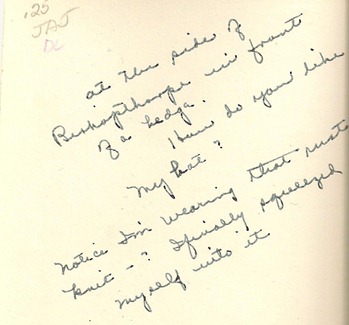 .25
JAJ
DL
at the side of
Bishopthorpe in front
of a hedge.
How do you like
my hat?
Notice I'm wearing that rust
knit -? I finally squeezed
myself into it